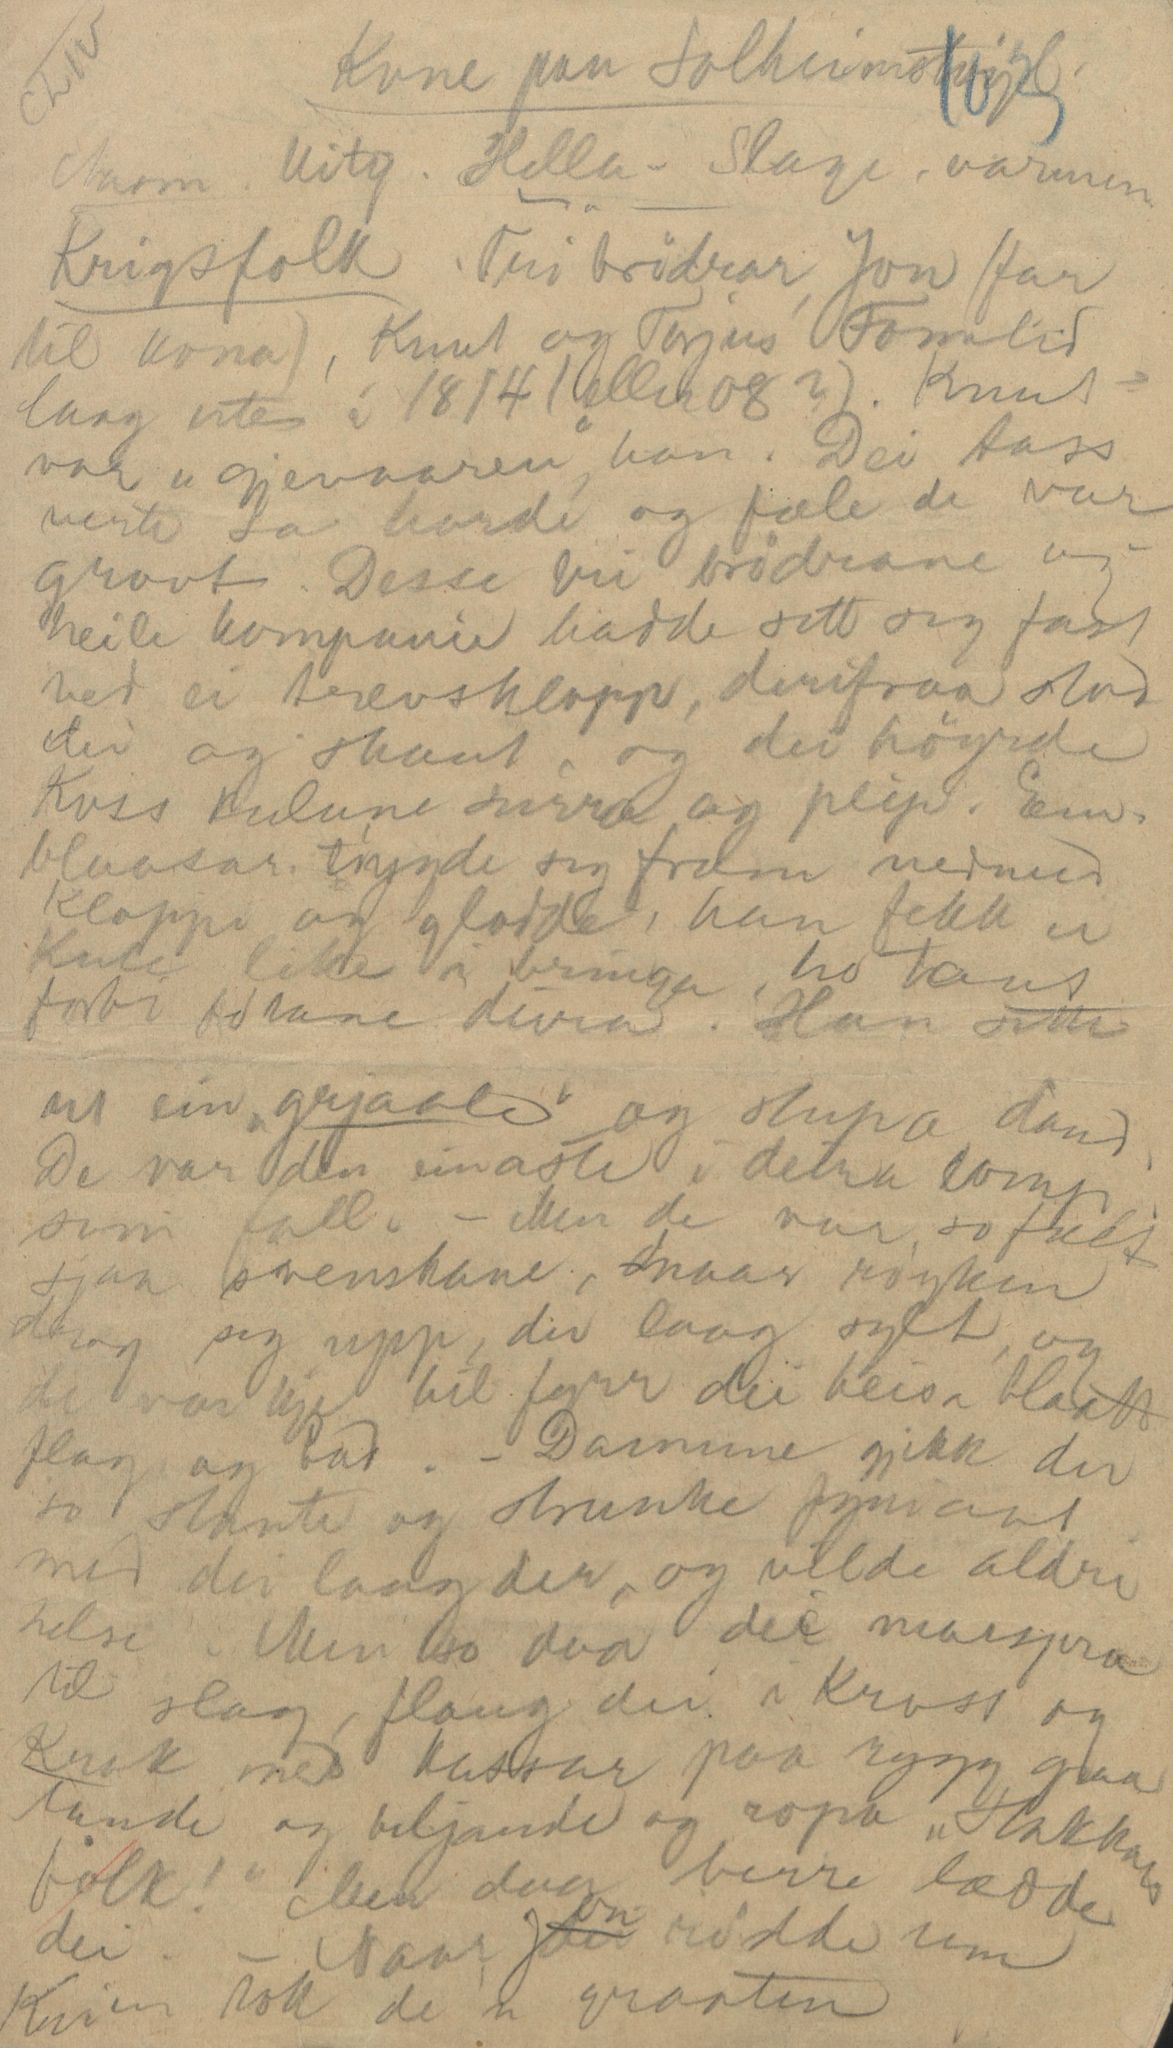 Kone paa Solheimstveit.
Mæm. Kitg. Hella - Slage. varmen
Krigsfolk. Tri brödrar, Jon (far
til kona), Knut og Torjus Fomlid
laag ute i 1814 (eller 08?). Knut
var "gjevaaren", han. Dei tass
verte so harde og fæle de var
grovt. Desse tri brödrane og
heile kompanie hadde sett seg fast
ved ei trevsklopp, derifraa stod
dei og skaut, og dei höyrde
koss kulune surra og pleip. Ein
blaasar trygde seg fram nedmed
kloppi og glodde, han fekk ei
kule like i bringa, ho kaus
forbi fötane deira. Han sette
ut ein "grjaale" og stupa daud.
De var den einaste i deira komp
som fall. - Men de var so fælt
sjaa svenskane, naar röyken
drog seg upp, dei laag sylt, og
de var kje til fyrr dei heisa blaatt
flag og bad. - Damune gjekk der
so skante og strunke fyriaat
med dei laag der, og vilde aldri
helse. Men so daa dei marsjera
til slag, flaug dei i kross og
krok med kassar paa rygg graa
tande og beljande og ropa "Stakkars
folk!" Men daa berre lædde
dei. - Naar Jon rödde um
Krien tok de i graaten